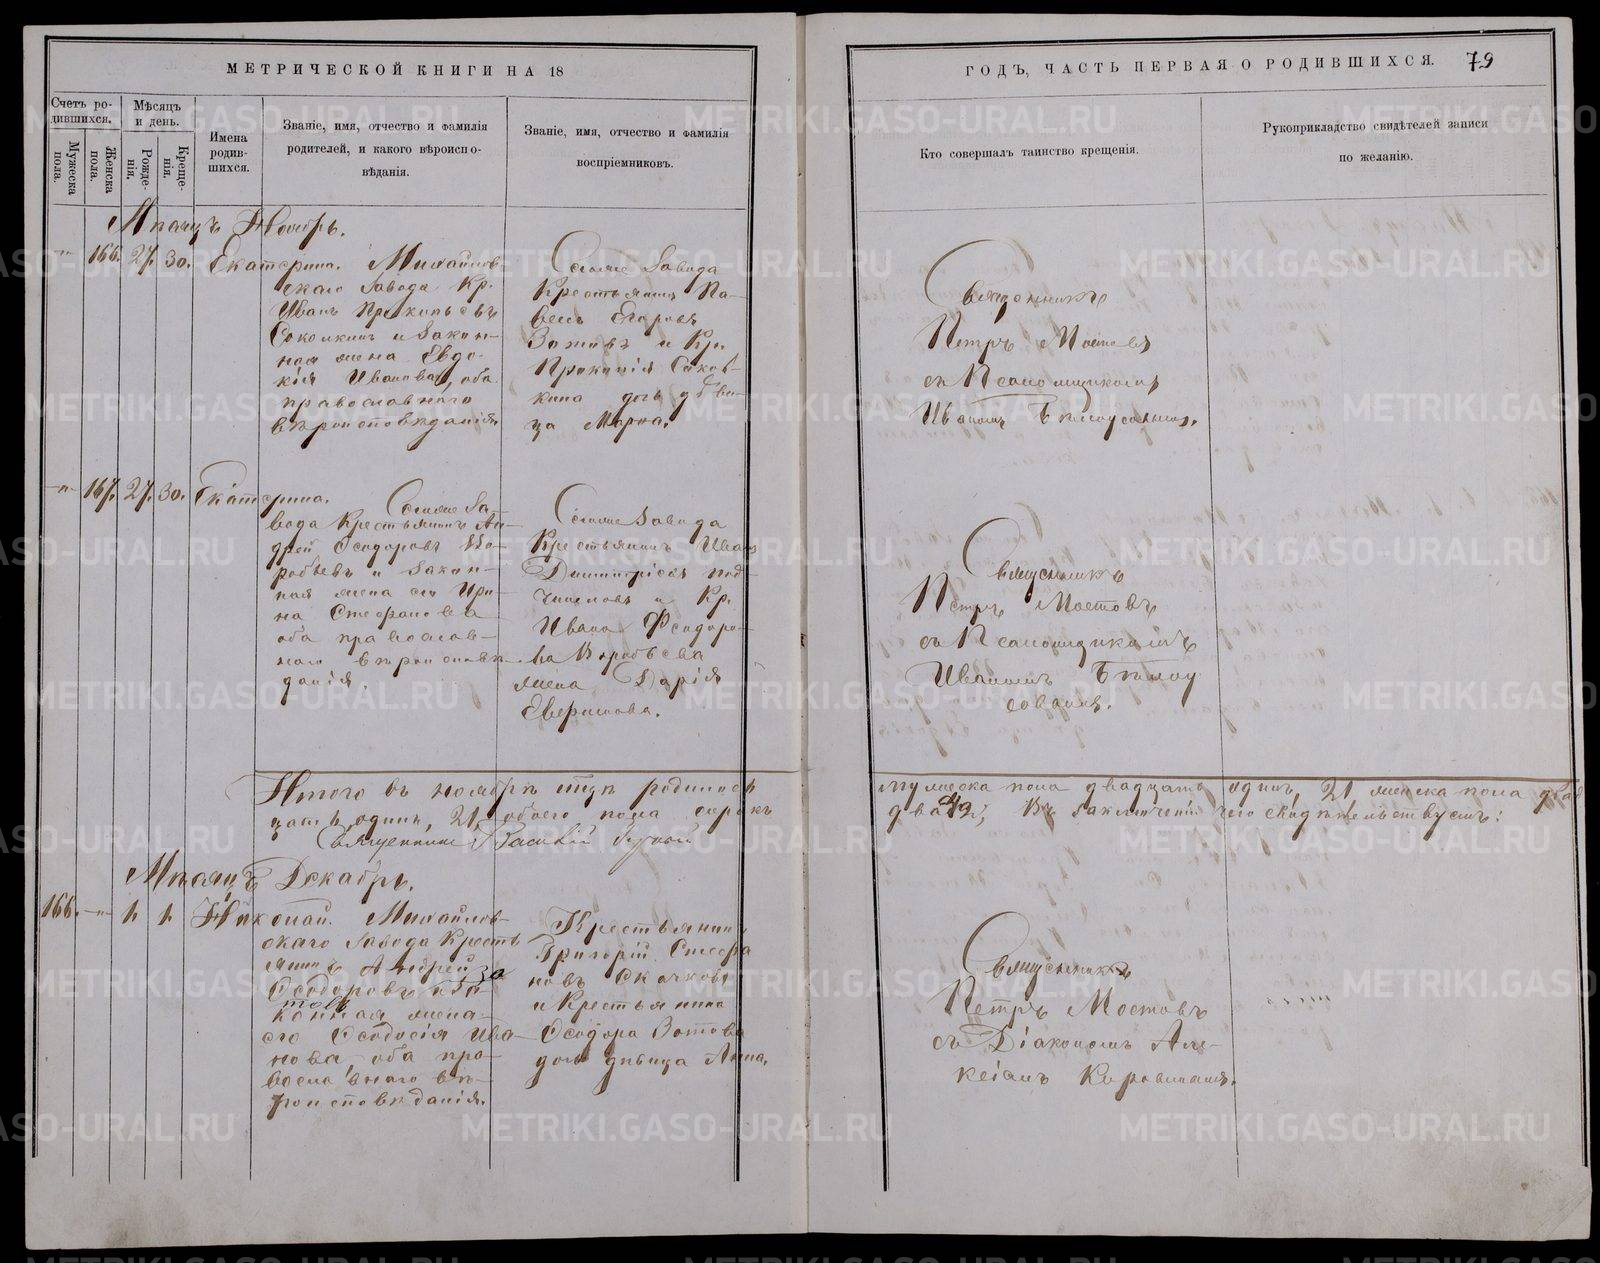 МЕТРИЧЕСКОЙ КНИГИ НА 18
ГОДЪ, ЧАСТЬ ПЕРВАЯ О РОДИВШИХСЯ.
79
Счетъ ро-
дившихся.
Мужеска
пола.
Женска
пола.
Мѣсяцъ
и день.
Рожде-
нія.
Креще-
нія.
Имена
родив-
шихся.
Званіе, имя, отчество и фамилія
родителей, и какого вѣроиспо-
вѣданія.
Званіе, имя, отчество и фамилія
воспріемниковъ.
Кто совершалъ таинство крещенія.
Рукоприкладство свидѣтелей записи
по желанію.
Мѣсяцъ Ноябрь.
166. 27. 30. Екатерина. Михайлов-
скаго завода Кр.
Иванъ Прокопьевъ
и закон-
ная жена Евдо-
кія Иванова, оба
православнаго
вѣроисповѣданія.
завода
Крестьянинъ Па-
велъ Егоровъ
Зотовъ и Кр.
Прокопія
кина дочь дѣви-
ца Марѳа.
Священникъ
Петръ Мостовъ
съ Псаломщикомъ
Иваномъ Бѣлоусовымъ.
167. 27. 30. Екатерина. за-
вода Крестьянинъ Ан-
дрей Ѳеодоровъ Во-
робьевъ и закон-
ная жена его Ири-
на Стефанова
оба православ-
наго вѣроисповѣ-
данія.
завода
Крестьянинъ Иванъ
Димитріевъ Под-
и Кр.
Ивана Ѳеодоро-
ва Воробьева
жена Дарія
Священникъ
Петръ Мостовъ
съ Псаломщикомъ
Иваномъ Бѣлоу
совымъ.
Итого въ ноябрѣ родилось
мужеска пола двадцать одинъ, 21 женска пола двад
цать одинъ, 21, обоего пола сорокъ
два 42; Въ заключеніи чего свидѣтельствуемъ:
Священникъ Василій
Мѣсяцъ Декабрь.
166. 1 1 Николай. Михайлов-
скаго завода Кресть
янинъ Андрей
Ѳеодоровъ
за
конная жена
его Ѳеодосія Ива-
нова, оба пра-
вославнаго вѣ-
роисповѣданія.
Крестьянинъ
Григорій Стефа
новъ
и Крестьянина
Ѳеодора Зотова
дочь дѣвица Анна.
Священникъ
Петръ Мостовъ
съ Діакономъ Але-
ксіемъ Коровинымъ.
METRIKI.GASO-URAL.RU